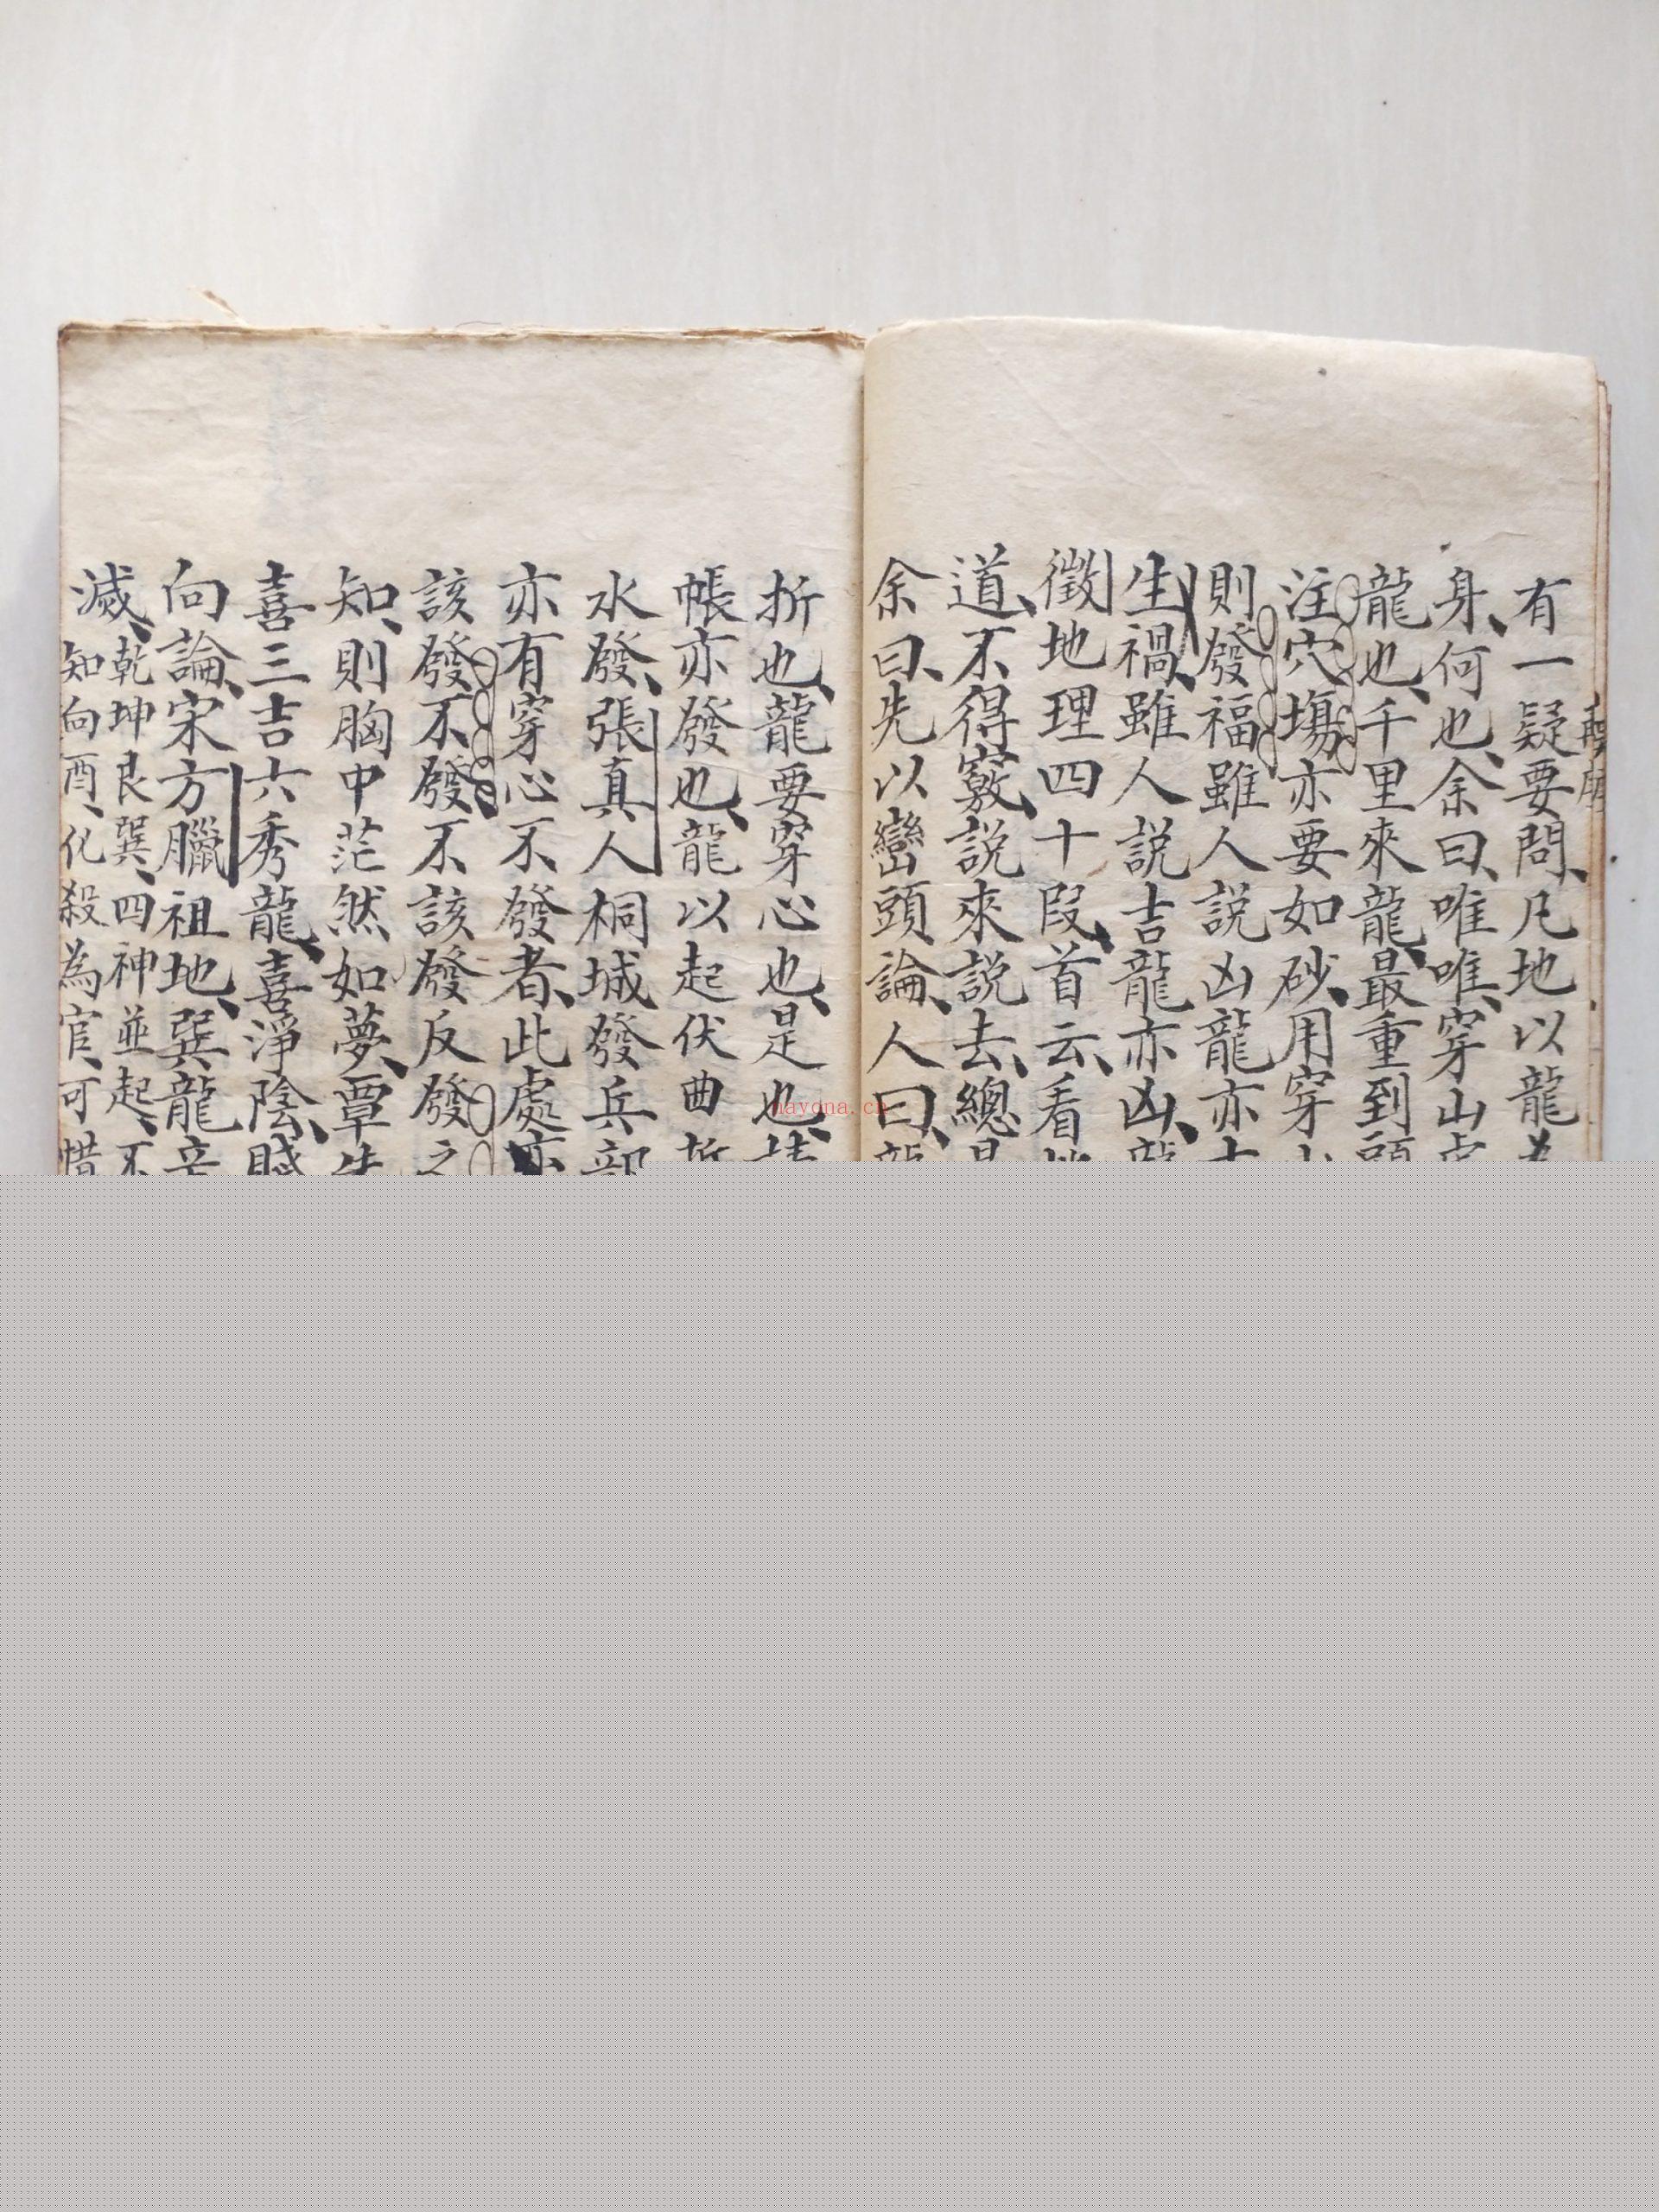 有一疑要問凡地以龍為
身何也余曰唯唯穿山虎
龍也千里來龍最重到頭
注穴塲亦要如砂用穿山
則發福雖人説凶龍亦吉
生禍雖人説吉龍亦凶龍
徵地理四十段首云看地
道不得竅説來説去總是
余曰先以巒頭論人曰龍
折也龍要穿心也是也
帳亦發也龍以起伏曲折
水發張真人桐城發兵部
亦有穿心不發者此處亦
該發不發不該發反發之
知則胸中茫然如夢覃生
喜三吉六秀龍喜淨陰賦
向論宋方臘祖地巽龍辛
滅
乾坤艮巽四神並起不
知向酉化殺為官可惜
mayona.cn